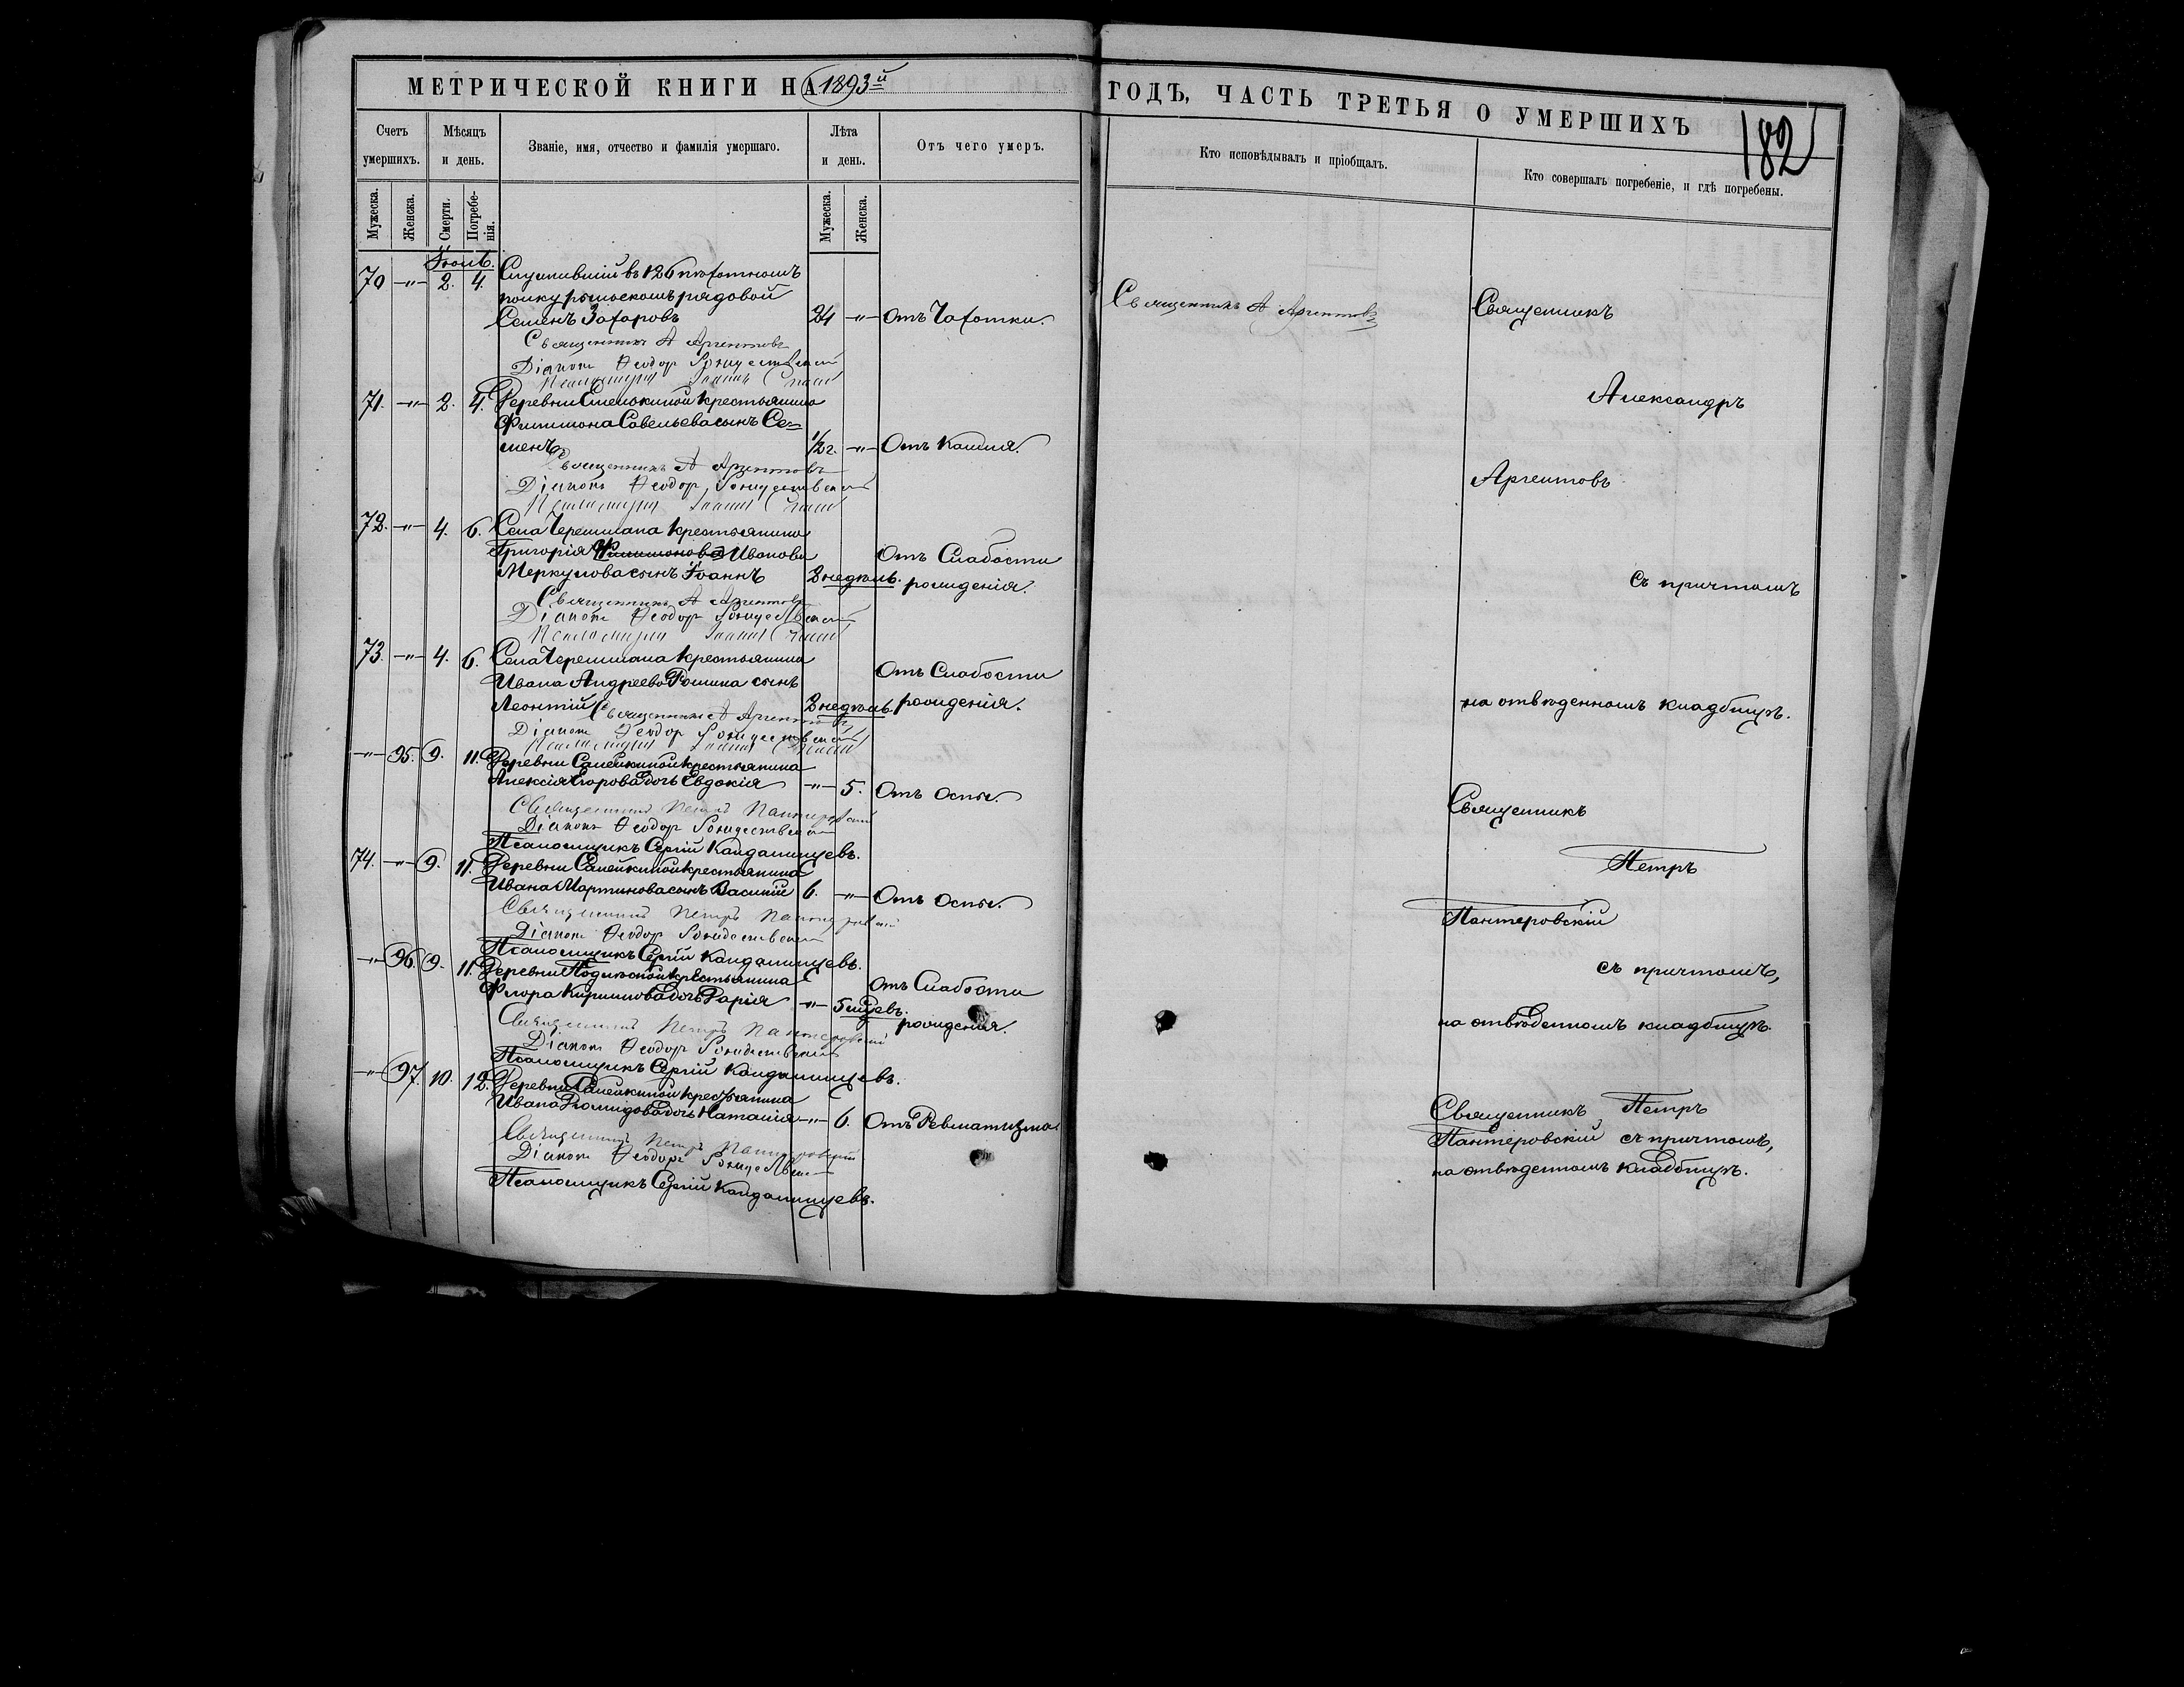 МЕТРИЧЕСКОЙ КНИГИ НА 1893й
ГОДЪ, ЧАСТЬ ТРЕТЬЯ О УМЕРШИХЪ
182
Счетъ умершихъ.
Мѣсяцъ и день.
Званіе, имя, отчество и фамилія умершаго.
Лѣта и день.
Отъ чего умеръ.
Кто исповѣдывалъ и пріобщалъ.
Кто совершалъ погребеніе, и гдѣ погребены.
Мужеска.
Женска.
Смерти.
Погребенія.
Мужеска.
Женска.
70 -"- 2. 4. Служившій въ 126 пѣхотномъ
полку рыльскомъ рядовой
Семенъ Захаровъ 24 -"- Отъ Чахотки.
Священникъ А Аргентовъ
Діаконъ Ѳеодоръ Рождественскій
Псаломщикъ Іоаннъ
71. -"- 2. 4. Деревни крестьянина
Филимона Савельева сынъ Се=
менъ 1/2 г. -"- Отъ Кашля.
Священникъ А Аргентовъ
Діаконъ Ѳеодоръ Рождественскій
Псаломщикъ Іоаннъ
72. -"- 4. 6. Села Черемшана крестьянина
Григорія Филимонова Иванова
Меркулова сынъ Іоаннъ 3 недѣль. Отъ Слабости
рожденія.
Священникъ А Аргентовъ
Діаконъ Ѳеодоръ Рождественскій
Псаломщикъ Іоаннъ
73. -"- 4. 6. Села Черемшана крестьянина
Ивана Андреева Фомина сынъ
Леонтій 3 недѣль. Отъ Слабости
рожденія.
Священникъ А Аргентовъ
Діаконъ Ѳеодоръ Рождественскій
Псаломщикъ Іоаннъ
-"- 95. 9. 11. Деревни Самейкиной крестьянина
Алексія Егорова дочь Евдокія -"- 5. Отъ оспы.
Священникъ Петръ Пантеровскій
Діаконъ Ѳеодоръ Рождественскій
Псаломщикъ Сергій Кандалинцевъ.
74. -"- 9. 11. Деревни Самейкиной крестьянина
Ивана Мартинова сынъ Василій 6. -"- Отъ оспы.
Священникъ Петръ Пантеровскій
Діаконъ Ѳеодоръ Рождественскій
Псаломщикъ Сергій Кандалинцевъ.
-"- 96. 9. 11. Деревни крестьянина
Флора Кириллова дочь Дарія -"- 5 мцевъ. отъ Слабости
рожденія.
Священникъ Петръ Пантеровскій
Діаконъ Ѳеодоръ Рождественскій
Псаломщикъ Сергій Кандалинцевъ.
-"- 97. 10. 12. Деревни Самейкиной крестьянина
Ивана дочь Наталія -"- 6. Отъ Ревматизма
Священникъ Петръ Пантеровскій
Діаконъ Ѳеодоръ Рождественскій
Псаломщикъ Сергій Кандалинцевъ.
Священникъ А Аргентовъ
Священникъ
Александръ
Аргентовъ
съ причтомъ
на отвѣденномъ кладбищѣ.
Священникъ
Петръ
Пантеровскій
съ причтомъ,
на отвѣденномъ кладбищѣ.
Священникъ Петръ
Пантеровскій съ причтомъ,
на отвѣденномъ кладбищѣ.